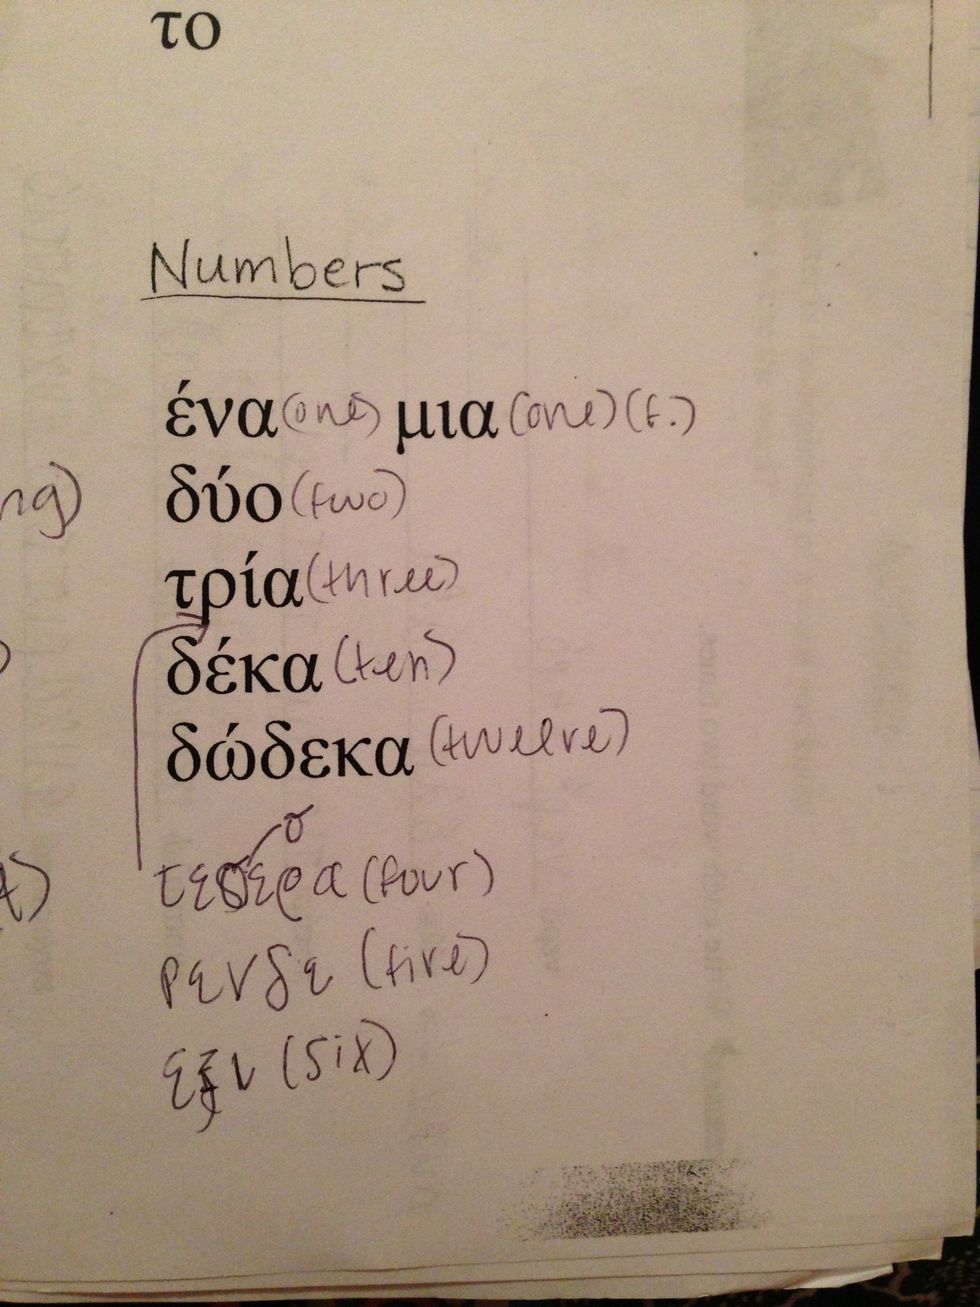 το
Numbers
ένα (one) μια (one) (f.)
ng) δύο (two)
τρία (three)
δέκα (ten)
δώδεκα (twelve)
σ
τεσερα (four)
ρενδε (five)
εξι (six)